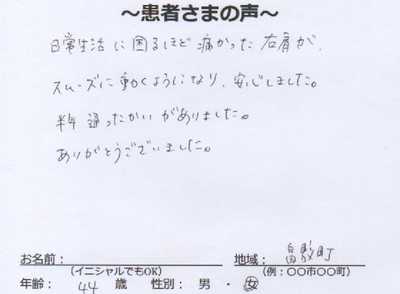 ～患者さまの声～
日常生活に困るほど痛かった右肩が、
スムーズに動くようになり、安心しました。
半年通ったかいがありました。
ありがとうございました。
お名前： 地域：
(イニシャルでもOK) (例：〇〇市〇〇町)
年齢： 44 歳 性別： 男 ・ 女